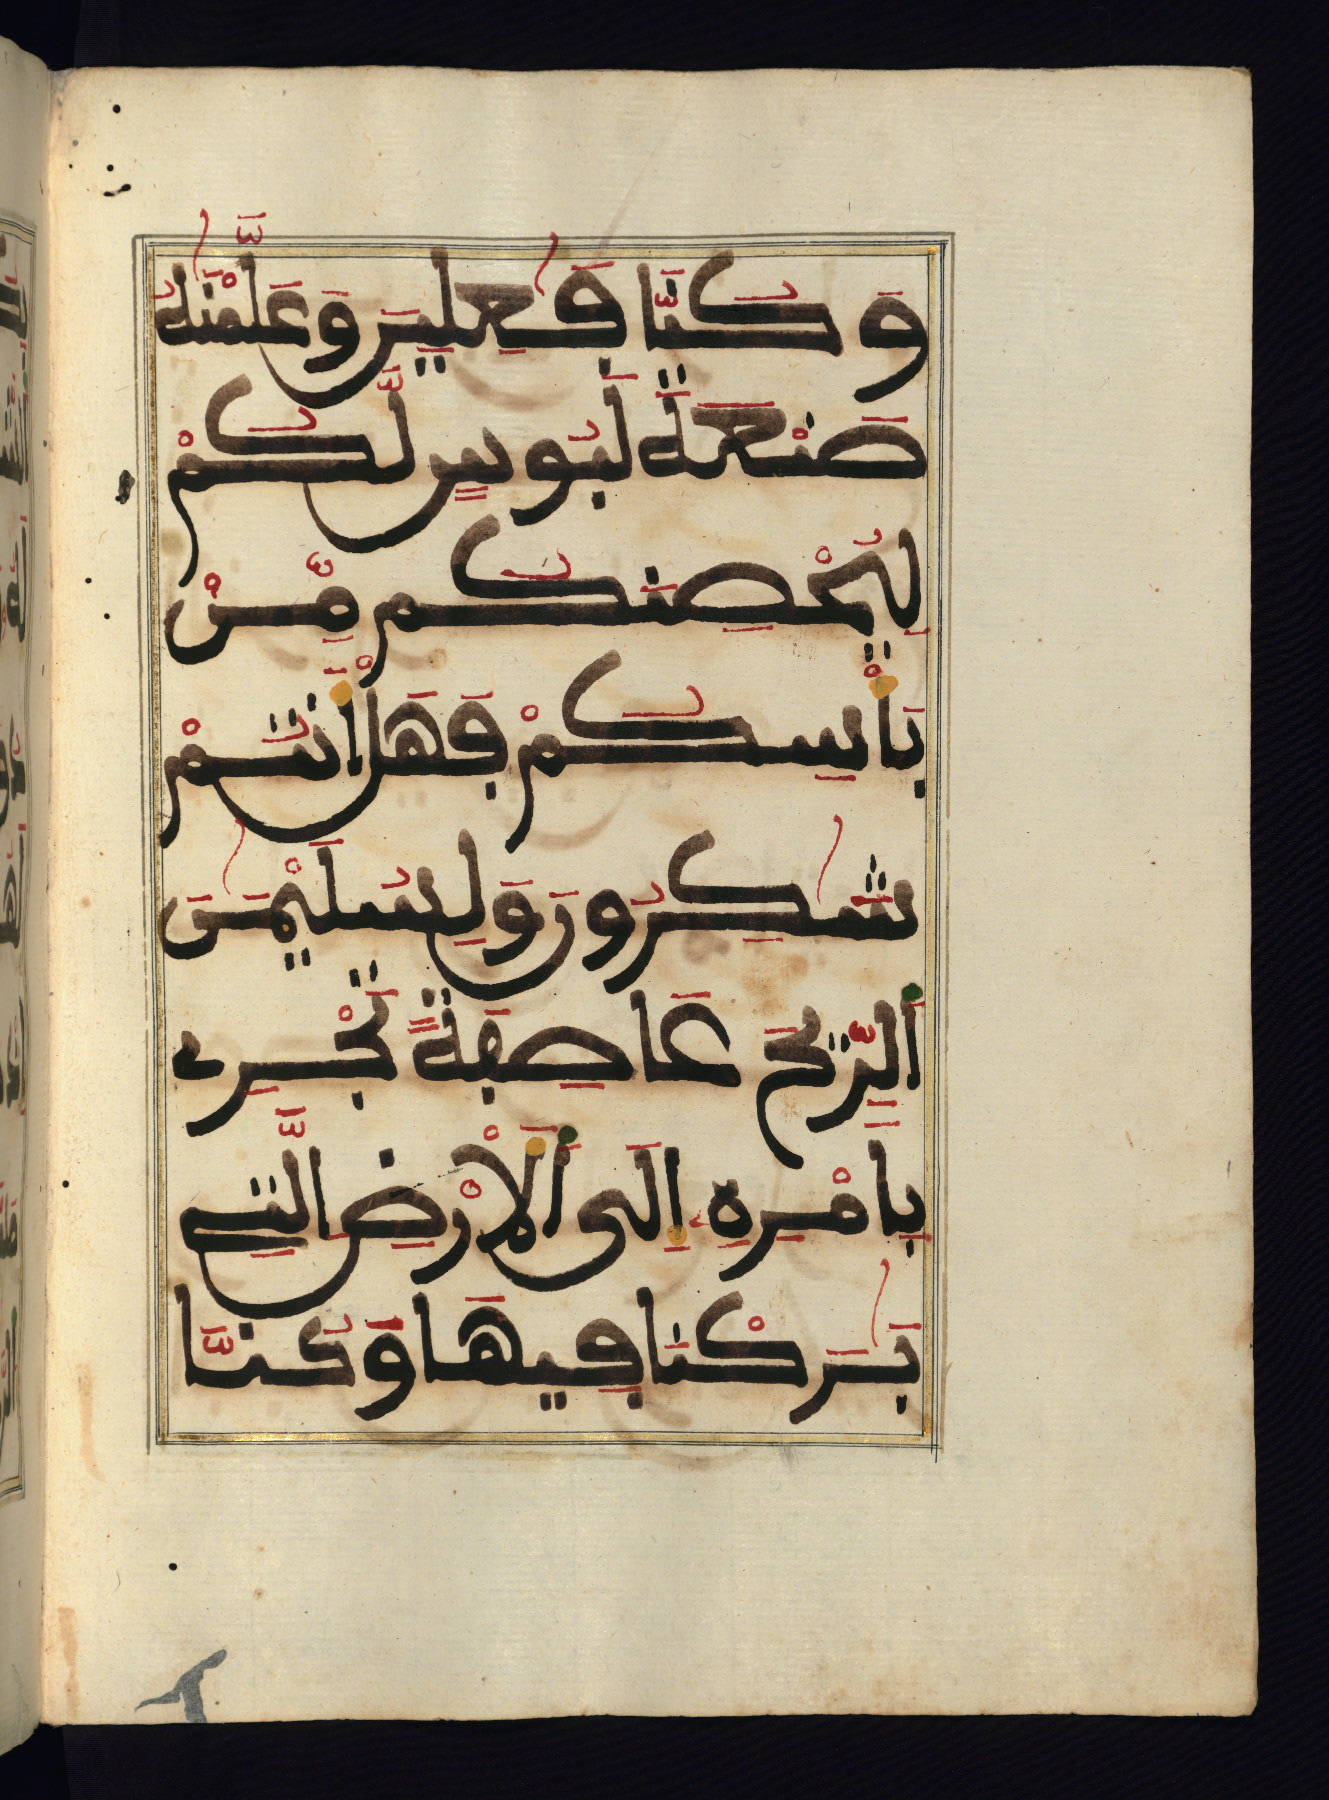 وَكُنَّا فَٰعِلِينَ وَعَلَّمْنَٰهُ
صَنْعَةَ لَبُوسٍ لَّكُمْ
لِيُحْصِنَكُم مِّنۢ
بَأْسِكُمْ فَهَلْ أَنتُمْ
شَٰكِرُونَ وَلِسُلَيْمَٰنَ
اَ۬لرِّيحَ عَاصِفَةً تَجْرِے
بِأَمْرِهِۦ إِلَى اَ۬لْأَرْضِ اِ۬لتِے
بَٰرَكْنَا فِيهَا وَكُنَّا